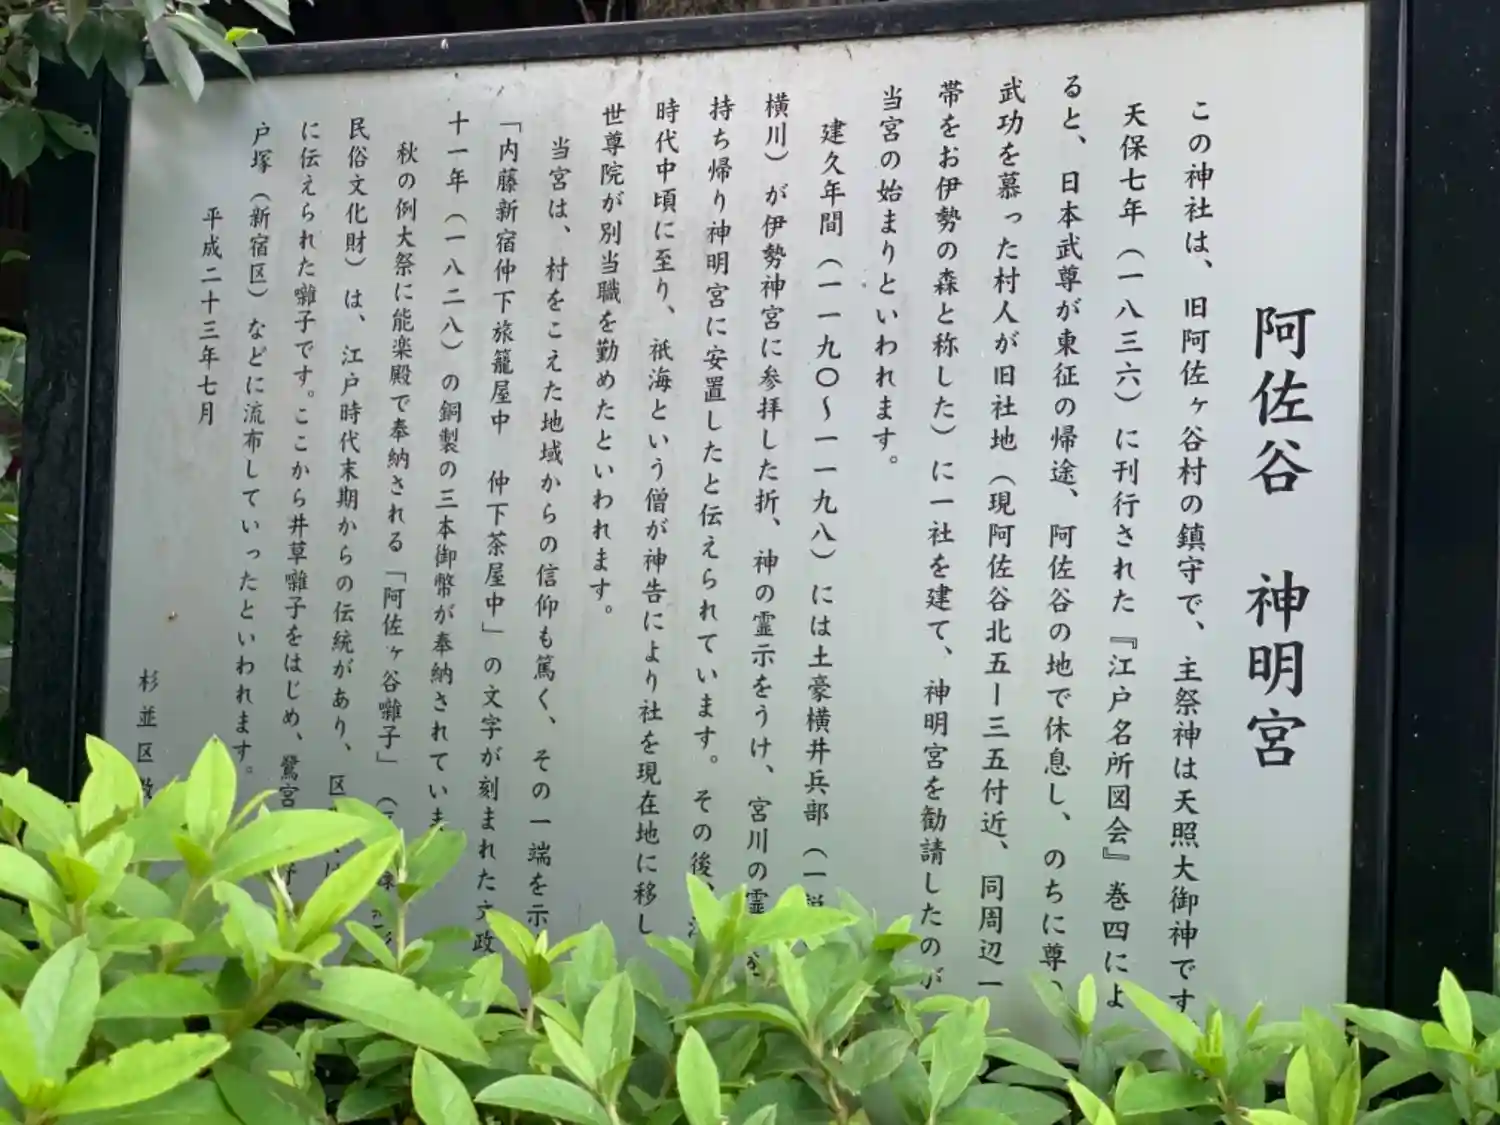 阿佐谷　神明宮
この神社は、旧阿佐ヶ谷村の鎮守で、主祭神は天照大御神です
天保七年（一八三六）に刊行された『江戸名所図会』巻四によ
ると、日本武尊が東征の帰途、阿佐谷の地で休息し、のちに尊
武功を慕った村人が旧社地（現阿佐谷北五ー三五付近、同周辺一
帯をお伊勢の森と称した）に一社を建て、神明宮を勧請したのが
当宮の始まりといわれます。
建久年間（一一九〇～一一九八）には土豪横井兵部（一説
横川）が伊勢神宮に参拝した折、神の霊示をうけ、宮川の霊
持ち帰り神明宮に安置したと伝えられています。その後、
時代中頃に至り、祇海という僧が神告により社を現在地に移し
世尊院が別当職を勤めたといわれます。
当宮は、村をこえた地域からの信仰も篤く、その一端を示
「内藤新宿仲下旅籠屋中　仲下茶屋中」の文字が刻まれた文政
十一年（一八二八）の銅製の三本御幣が奉納されていま
秋の例大祭に能楽殿で奉納される「阿佐ヶ谷囃子」（
民俗文化財）は、江戸時代末期からの伝統があり、区
に伝えられた囃子です。ここから井草囃子をはじめ、鷺宮
戸塚（新宿区）などに流布していったといわれます。
平成二十三年七月
杉並区教